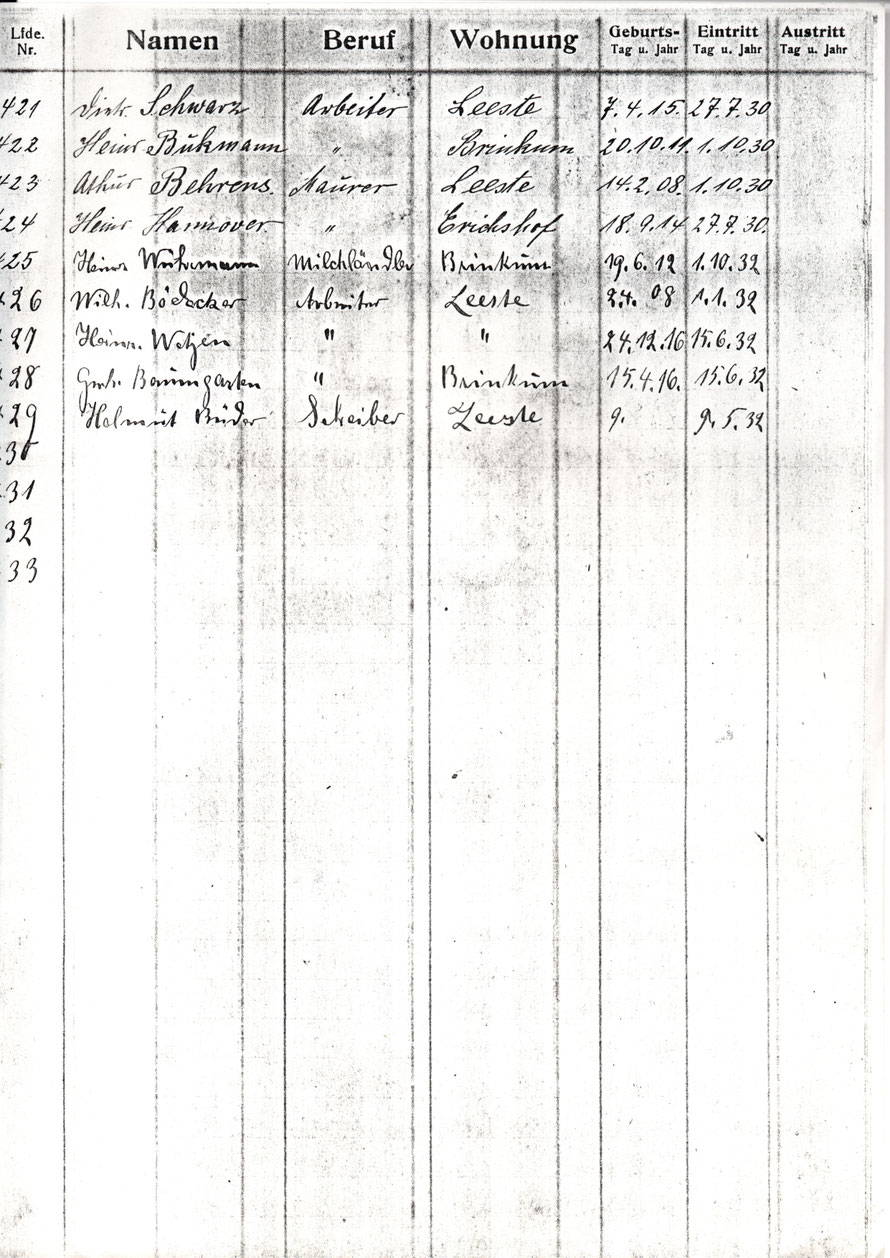 Lfde. Nr. Namen Beruf Wohnung Geburts- Tag u. Jahr Eintritt Tag u. Jahr Austritt Tag u. Jahr
421 Dietr. Schwarz Arbeiter Leeste 7.4.15. 27.7.30
422 Heinr. Bukmann " Brinkum 20.10.11. 1.10.30
423 Athur Behrens. Maurer Leeste 14.2.08. 1.10.30
24 Heinr Hannover " Erichshof 18.9.14 27.7.30.
25 Heinr. Milchhändler Brinkum 19.6.12 1.10.32
26 Wilh. Bödecker Arbeiter Leeste 08 1.1.32
27 Heinr. Wetjen " " 24.12.16 15.6.32
28 Baumgarten " Brinkum 15.4.16. 15.6.32
29 Helmut Büder Schreiber Leeste 9. 9.5.32
30
31
32
33